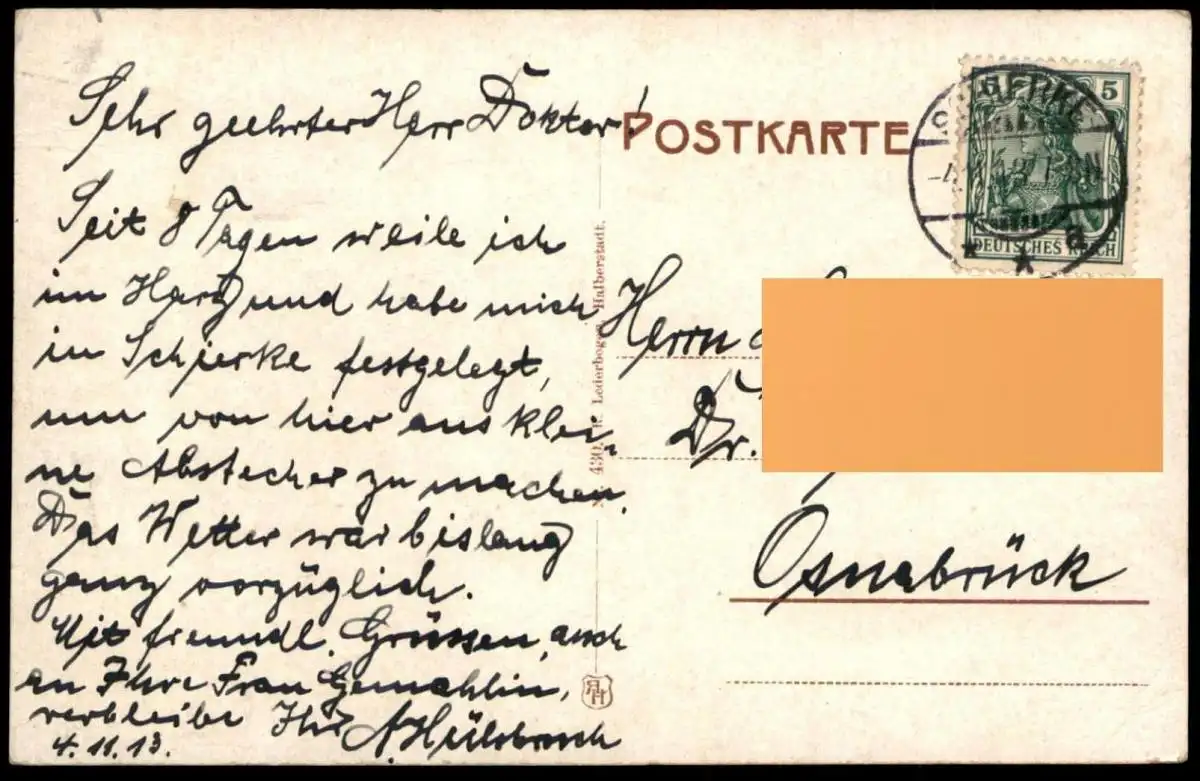 Sehr geehrter Herr Doktor!
Seit 8 Tagen weile ich
im Harz und habe mich
in Schierke festgelegt,
um von hier aus klei-
ne Abstecher zu machen.
Das Wetter war bislang
ganz vorzüglich.
Mit freundl. Grüssen, auch
an Ihre Frau Gemahlin,
verbleibe Ihr A. Hülsbusch
4.11.13.
430. Lederbogen, Halberstadt.
POSTKARTE
SCHIERKE
a
5
DEUTSCHES REICH
Herrn
Dr.
Osnabrück